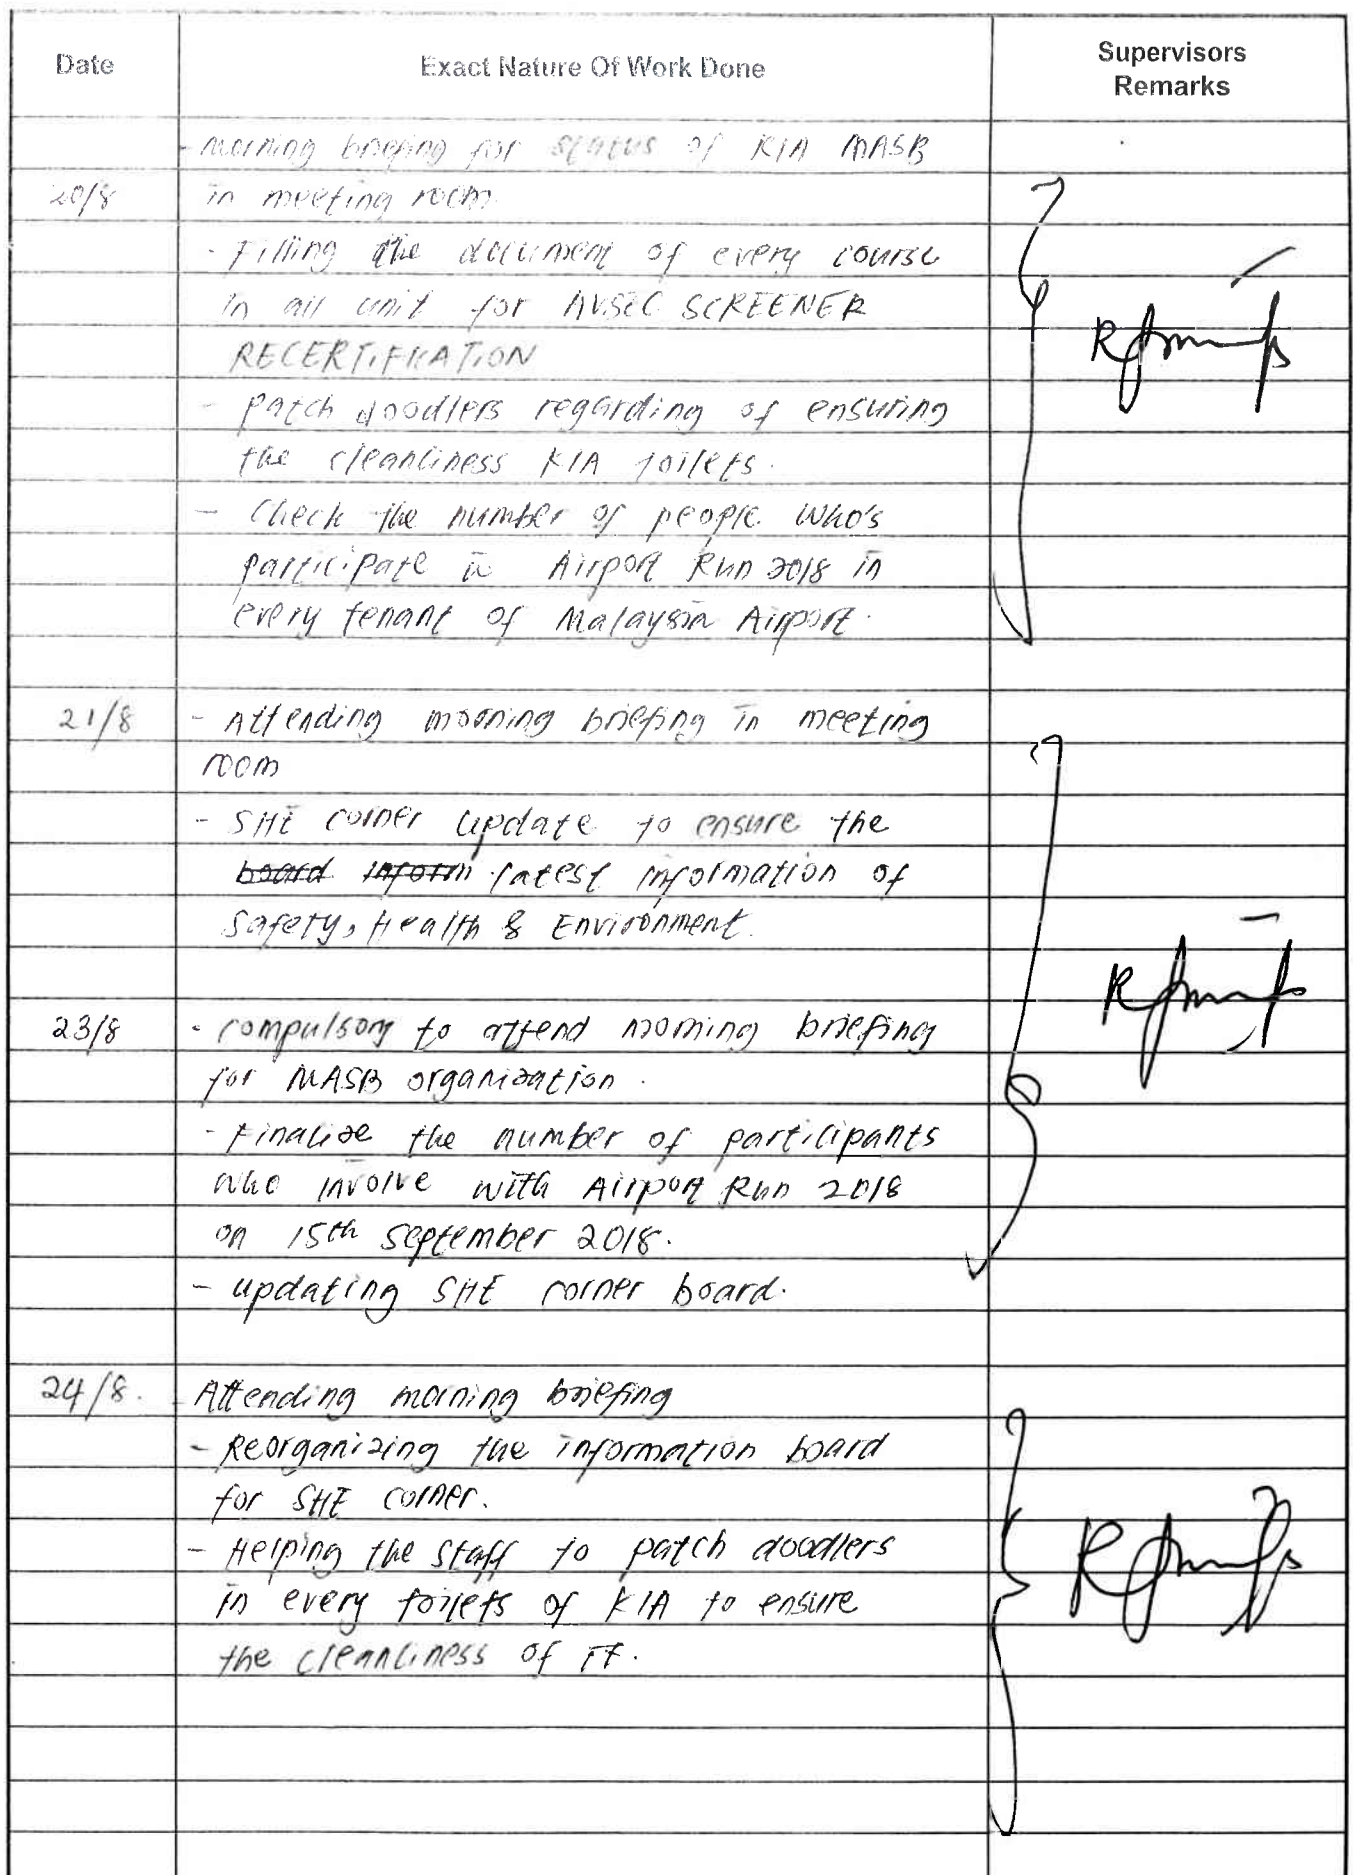 Date Exact Nature Of Work Done Supervisors
Remarks
- Morning briefing for status of KIA MASB
20/8 in meeting room
- Filling the document of every course
in all unit for AVSEC SCREENER
RECERTIFICATION
- patch doodlers regarding of ensuring
the cleanliness KIA toilets.
- Check the number of people who's
participate in Airport Run 2018 in
every tenant of Malaysia Airport.
21/8 - Attending morning briefing in meeting
room
- SHE corner update to ensure the
board inform latest information of
Safety, Health & Environment.
23/8 - compulsory to attend morning briefing
for MASB organization.
- Finalize the number of participants
who involve with Airport Run 2018
on 15th September 2018.
- updating SHE corner board.
24/8. - Attending morning briefing
- Reorganizing the information board
for SHE corner.
- Helping the staff to patch doodlers
in every toilets of KIA to ensure
the cleanliness of it.